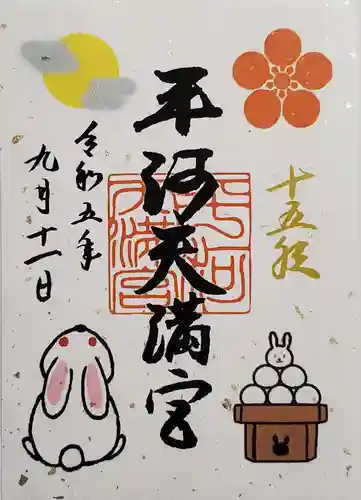 十五夜
平河天満宮
令和五年
九月十一日
平河天満宮